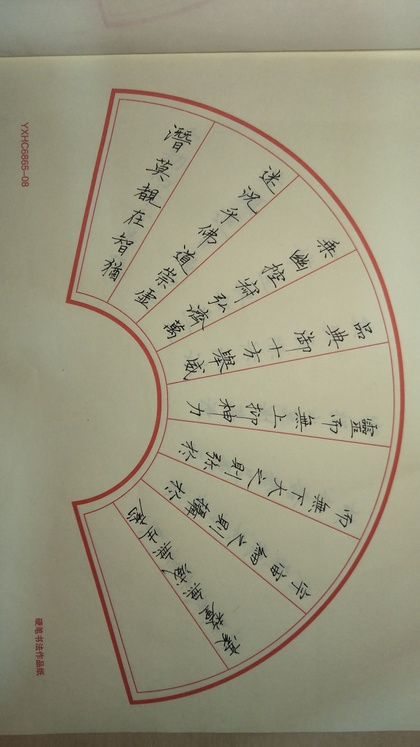 潛莫覩在智猶
迷况乎佛道崇虛
乘幽控寂弘濟萬
品典御十方舉威
靈而無上抑神力
而無下大之則弥於
宇宙細之則攝於
毫釐無滅無生歷
YXHC6865-08
硬笔书法作品纸